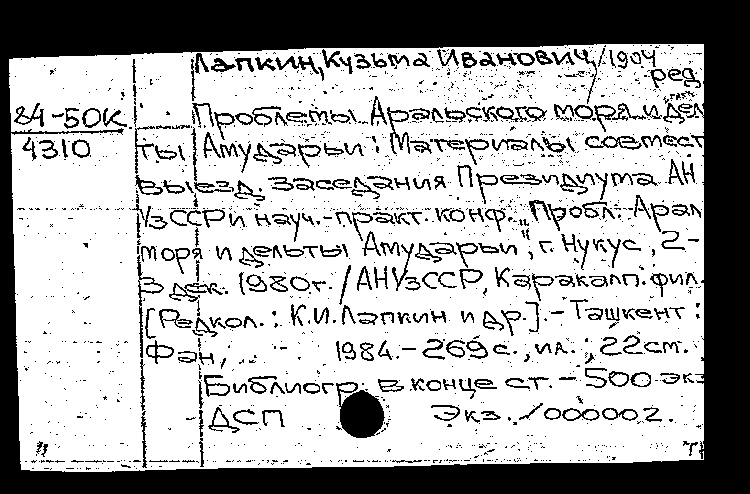 Лапкин, Кузьма Иванович, 1904
ред.
84-50К
4310
Проблемы Аральского моря и дель
ты Амударьи : Материалы совмест
выезд. заседания Президиума АН
УзССР и науч.-практ. конф. „Пробл. Арал
моря и дельты Амударьи", г. Нукус, 2-
3 дек. 1980г. / АН УзССР, Каракалп. фил.
[Редкол.: К.И. Лапкин и др.]. - Ташкент :
Фан, 1984. - 269 с., ил. ; 22 см.
Библиогр. в конце ст. - 500 экз
ДСП Экз. 1000002.